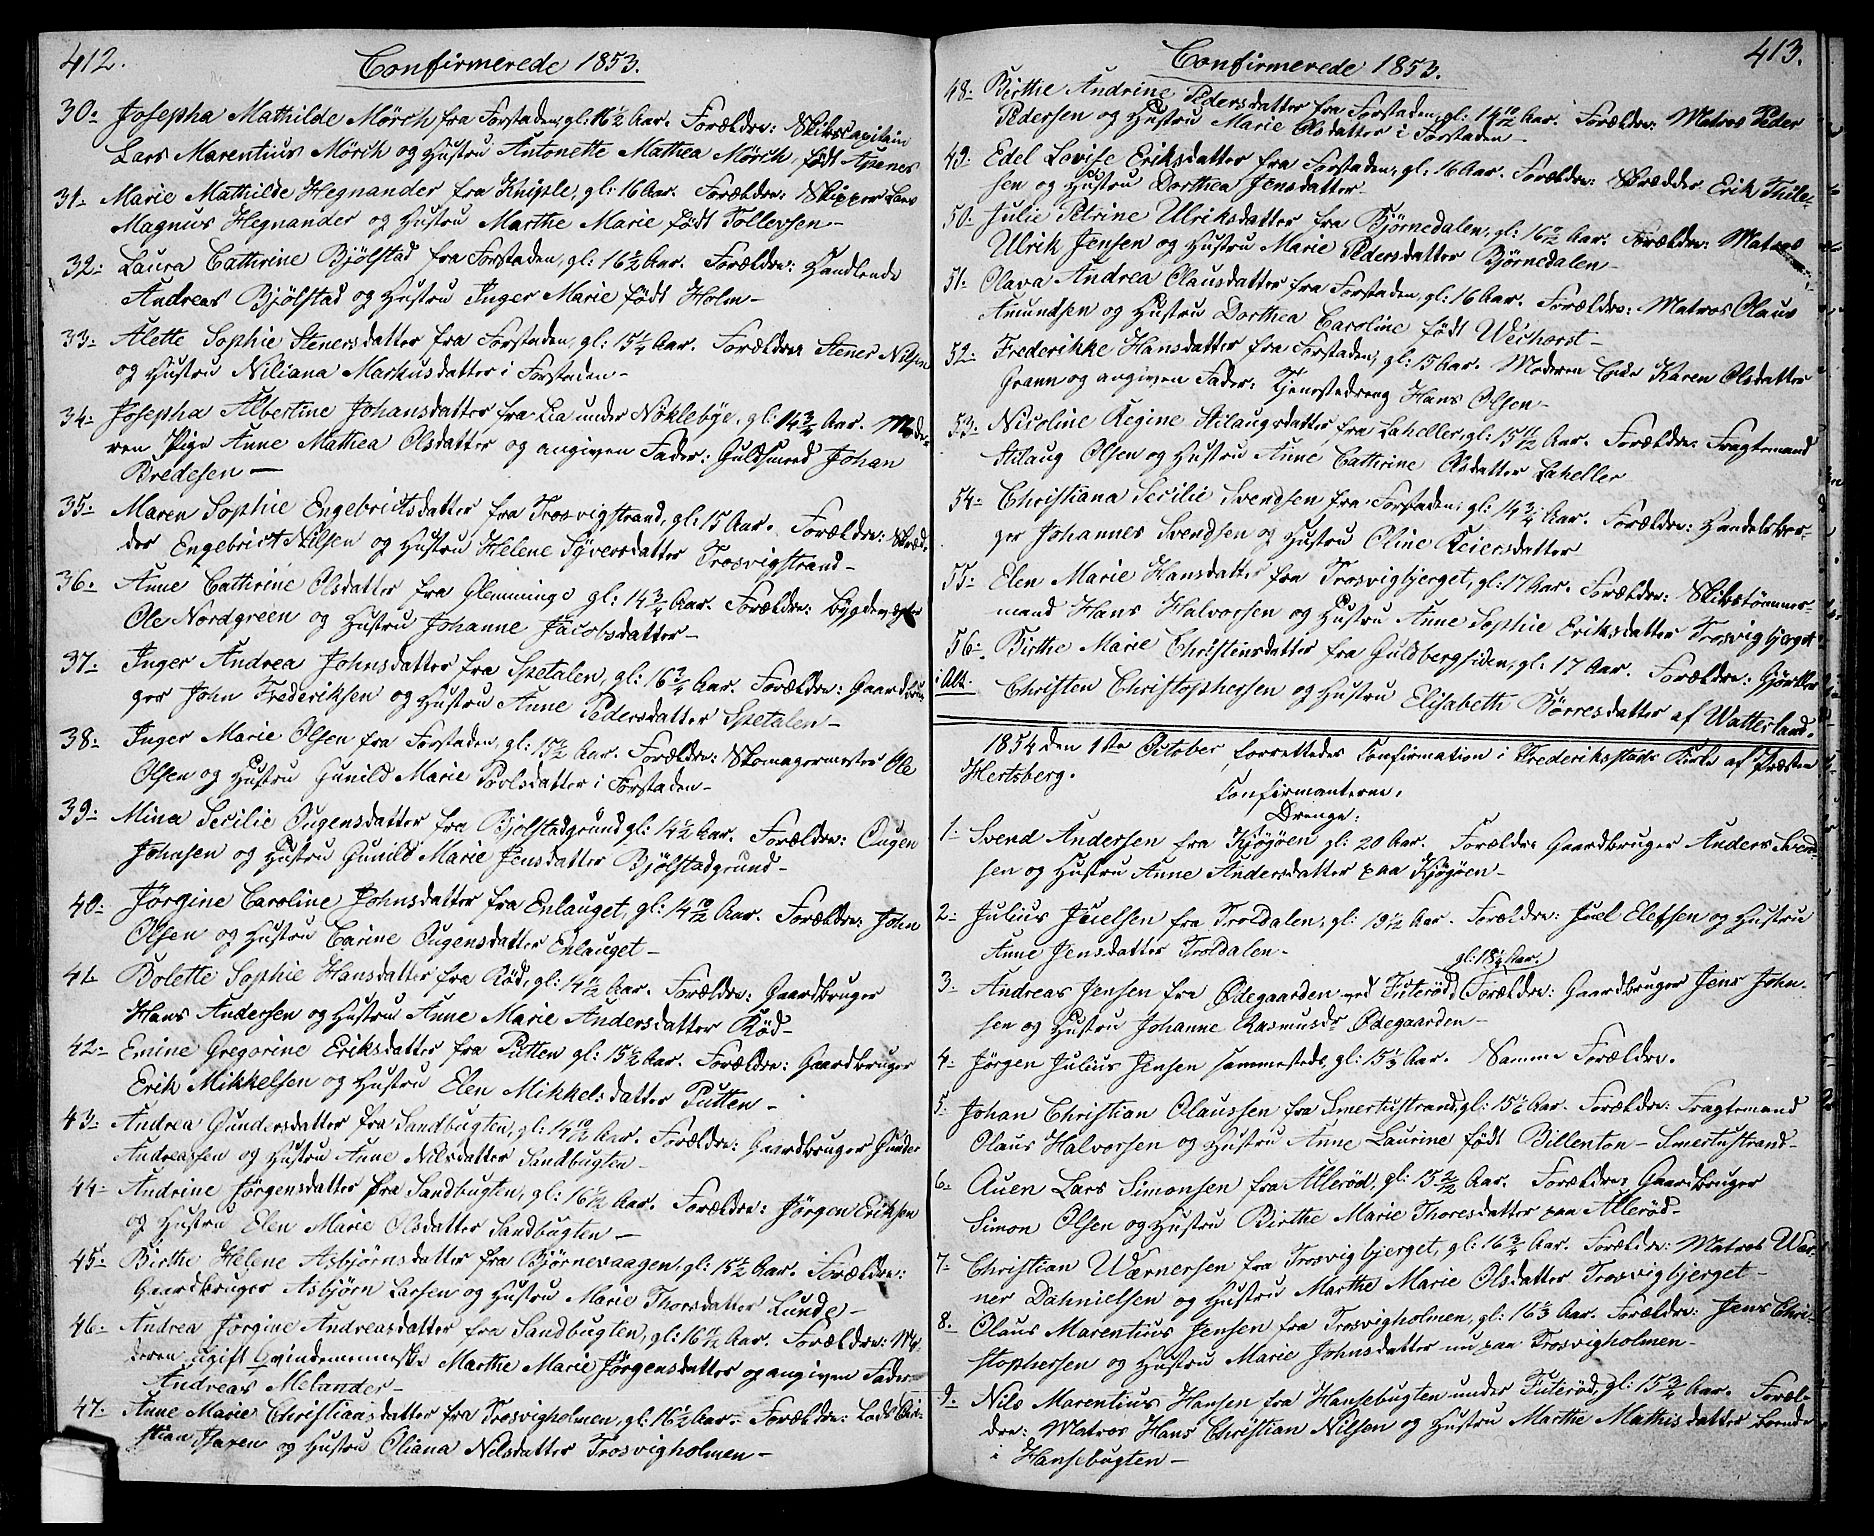 412.
Confirmerede 1853.
30. Josepha Mathilde Mörch fra Forstaden, gl: 16½ Aar. Forældre: Skibscapitain
Lars Marentius Mörch og Hustru Antonette Mathea Mörch, født Apenes
31. Marie Mathilde Hegnander fra Kniple, gl: 16 Aar. Forældre: Skipper Lars
Magnus Hegnander og Hustru Marthe Marie født Tollevsen –
32. Laura Cathrine Bjölstad fra Forstaden, gl: 16 Aar. Forældre: Handlende
Andreas Bjölstad og Hustru Inger Marie født Holm –
33. Alette Sophie Stenersdatter fra Forstaden, gl: 15¼ Aar. Forældre Stener Nilsen
og Hustru Niliana Markusdatter i Forstaden –
34. Josepha Albertine Johansdatter fra Lia under Nøklebye, gl: 14¾ Aar. Mode-
ren Pige Anne Mathea Olsdatter og angiven Fader: Guldsmed Johan
Bredesen –
35. Maren Sophie Engebrictsdatter fra Trosvigstrand, gl: 15 Aar. Forældre: Skræd-
der Engebrict Nilsen og Hustru Helene Syversdatter Trosvigstrand –
36. Anne Cathrine Olsdatter fra Glemminge gl: 14¾ Aar. Forældre: Bygdevægter
Ole Nordgreen og Hustru Johanne Jacobsdatter –
37. Inger Andrea Johnsdatter fra Spetalen, gl: 16¾ Aar. Forældre: Gaardbru-
ger John Frederiksen og Hustru Anne Pedersdatter Spetalen –
38. Inger Marie Olsen fra Forstaden, gl: 15 Aar. Forældre: Skomagermester Ole
Olsen og Hustru Gunild Marie Povlsdatter i Forstaden –
39. Mina Secilie Ougensdatter fra Bjölstadgrund gl: 14½ Aar. Forældre: Ougen
Johnsen og Hustru Gunild Marie Jensdatter Bjölstadgrund –
40. Jörgine Caroline Johnsdatter fra Enlauget, gl: 14 10/12 Aar. Forældre: John
Olsen og Hustru Carine Ougensdatter Enlauget –
41. Bolette Sophie Hansdatter fra Rød, gl: 14 11/12 Aar. Forældre: Gaardbruger
Hans Andersen og Hustru Anne Marie Andersdatter Rød –
42. Emine Gregorine Eriksdatter fra Putten gl: 15½ Aar. Forældre: Gaardbruger
Erik Mikkelsen og Hustru Elen Mikkelsdatter Putten –
43. Andrea Gundersdatter fra Sandbugten, gl: 14 10/12 Aar. Forældre: Gaardbruger Gunder
Andreassen og Hustru Anne Nilsdatter Sandbugten –
44. Andrine Jörgensdatter fra Sandbugten, gl: 16 Aar. Forældre: Jörgen Eriksen
og Hustru Elen Marie Olsdatter Sandbugten –
45. Birthe Helene Asbjörnsdatter fra Bjørnevaagen, gl: 15½ Aar. Forældre:
Gaardbruger Asbjørn Larsen og Hustru Marie Thorsdatter Lunde –
46. Andrea Jörgine Andreasdatter fra Sandbugten, gl: 16 Aar. Forældre: Mo-
deren ugift Qvindemenneske Marthe Marie Jörgensdatter og angiven Fader
Andreas Melander –
47. Anne Marie Christiansdatter fra Trosvigholmen, gl: 16½ Aar. Forældre: Lods Chri-
stian og Hustru Oliana Nilsdatter Trosvigholmen –
413.
Confirmerede 1853.
48. Birthe Andrine Pedersdatter fra Forstaden, gl: 14 10/12 Aar. Forældre: Matros Peder
Pedersen og Hustru Marie Olsdatter i Forstaden –
49. Edel Lovise Eriksdatter fra Forstaden, gl: 16 Aar. Forældre: Skrædder Erik Thile-
sen og Hustru Dorthea Jensdatter –
50. Julie Petrine Ulriksdatter fra Bjørnedalen, gl: 16 Aar. Forældre: Matros
Ulrik Jensen og Hustru Marie Pedersdatter Bjørnedalen –
51. Olava Andrea Olausdatter fra Forstaden, gl: 16 Aar. Forældre: Matros Olaus
Amundsen og Hustru Dorthea Caroline født Weihorst –
52. Frederikke Hansdatter fra Forstaden, gl: 15 Aar. Moderen Enke Karen Olsdatter
Grann og angiven Fader: Tjenestedreng Hans Olsen –
53. Nicoline Regine Aslaugsdatter fra Laheller, gl: 15 11/12 Aar. Forældre: Fragtemand
Aslaug Olsen og Hustru Anne Cathrine Olsdatter Laheller
54. Christiana Secilie Svendsen fra Forstaden, gl: 14¾ Aar. Forældre: Handelsbor-
ger Johannes Svendsen og Hustru Oline Reiersdatter
55. Elen Marie Hansdatter fra Trosvigbjerget, gl: 17 Aar. Forældre: Skibstømmer-
mand Hans Halvorsen og Hustru Anne Sophie Eriksdatter Trosvigbjerget
56. Birthe Marie Christensdatter fra Guldbergsiden, gl: 17 Aar. Forældre: Gjørtler
i Alt. Christen Christophersen og Hustru Elisabeth Børresdatter af Watterland.
1854 den 1ste October, forrettedes Confirmation i Frederikstads Kirke af Præsten
Hertzberg.
Confirmanterne:
Drenge:
1. Svend Andersen fra Kjøgøen gl: 20 Aar. Forældre Gaardbruger Anders Svend-
sen og Hustru Anne Andersdatter paa Kjøgøen –
2. Julius Juelsen fra Troldalen, gl: 19½ Aar. Forældre: Juel Elefsen og Hustru
Anne Jensdatter Troldalen –
gl: 18½ Aar.
3. Andreas Jensen fra Ødegaarden ved Futerød, Forældre: Gaardbruger Jens John-
sen og Hustru Johanne Rasmusdr Ødegaarden –
4. Jörgen Julius Jensen sammesteds, gl: 15⅓ Aar. Samme Forældre.
5. Johan Christian Olaussen fra Smertustrand, gl: 15 Aar. Forældre: Fragtemand
Olaus Halvorsen og Hustru Anne Laurine født Billenton – Smertustrand –
6. Auen Lars Simonsen fra Allerød, gl: 15 2/12 Aar. Forældre Gaardbruger
Simon Olsen og Hustru Birthe Marie Thoresdatter paa Allerød –
7. Christian Wærnersen fra Trosvigbjerget, gl: 16¾ Aar. Forældre: Matros Wær-
ner Dahnielsen og Hustru Marthe Marie Olsdatter Trosvigbjerget –
8. Olaus Marentius Jensen fra Trosvigholmen, gl: 16⅓ Aar. Forældre: Jens Chri-
stophersen og Hustru Marie Johnsdatter nu paa Trosvigholmen –
9. Nils Marentius Hansen fra Hansebugten under Futerød, gl: 15¾ Aar. Foræl-
dre: Matros Hans Christian Nilsen og Hustru Marthe Mathisdatter boende
i Hansebugten –